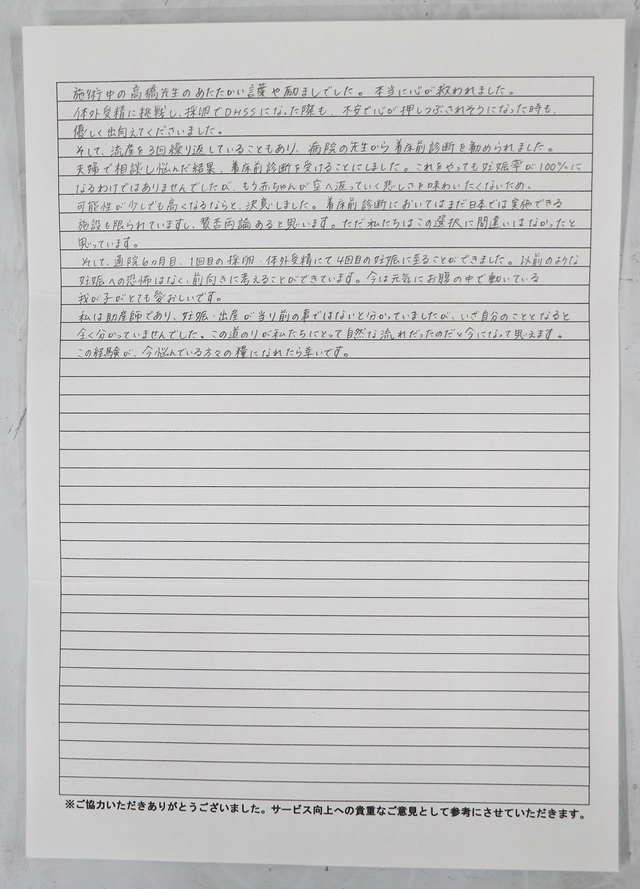 施術中の高橋先生のあたたかい言葉や励ましでした。本当に心が救われました。
体外受精に挑戦し、採卵でOHSSになった際も、不安で心が押しつぶされそうになった時も、
優しく出向えてくださいました。
そして、流産を3回繰り返していることもあり、病院の先生から着床前診断を勧められました。
夫婦で相談し悩んだ結果、着床前診断を受けることにしました。これをやっても妊娠率が100%に
なるわけではありませんでしたが、もう赤ちゃんが空へ返っていく悲しさを味わいたくないため、
可能性が少しでも高くなるならと、決意しました。着床前診断においてはまだ日本では実施できる
施設も限られていますし、賛否両論あると思います。ただ私たちはこの選択に間違いはなかったと
思っています。
そして、通院6ヵ月目、1回目の採卵・体外受精にて4回目の妊娠に至ることができました。以前のような
妊娠への恐怖はなく、前向きに考えることができています。今は元気にお腹の中で動いている
我が子がとても愛おしいです。
私は助産師であり、妊娠・出産が当り前の事ではないと分かっていましたが、いざ自分のこととなると
全く分かっていませんでした。この道のりが私たちにとって自然な流れだったのだと今になって思えます。
この経験が、今悩んでいる方々の糧になれたら幸いです。
※ご協力いただきありがとうございました。サービス向上への貴重なご意見として参考にさせていただきます。